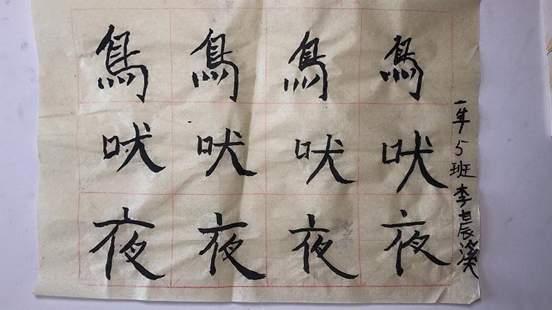 鳥 鳥 鳥 鳥
吠 吠 吠 吠
夜 夜 夜 夜
一年5班 李辰溪